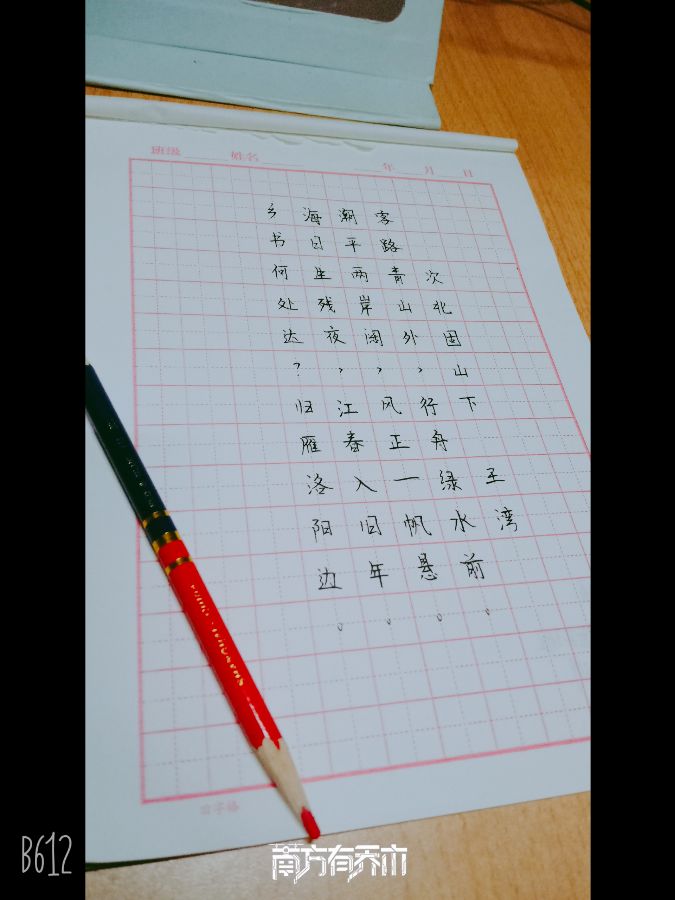 班级 姓名 年 月 日
次北固山下 王湾
客路青山外,行舟绿水前。
潮平两岸阔,风正一帆悬。
海日生残夜,江春入旧年。
乡书何处达?归雁洛阳边。
B612
南方有乔木